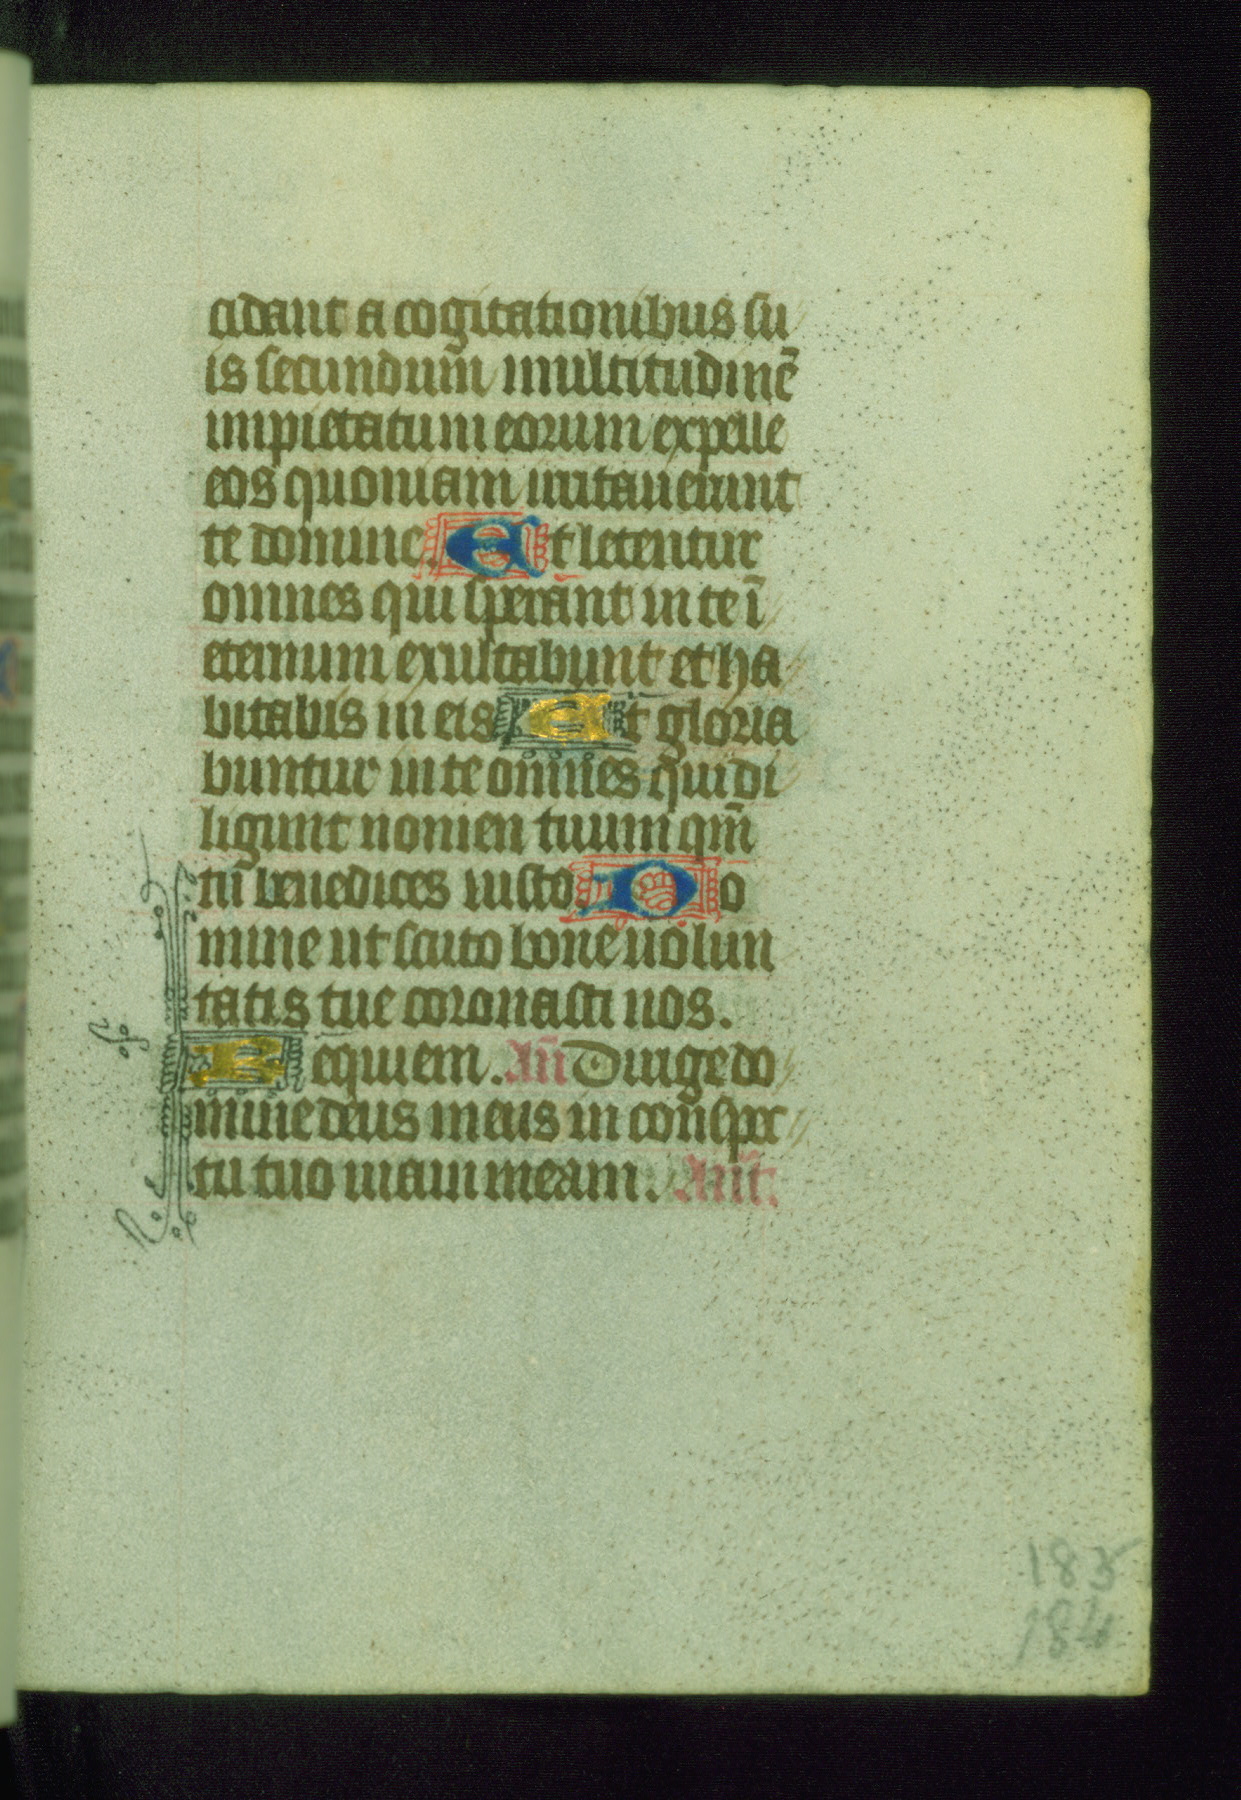 cidant a cogitationibus su
is secundum̄ multitudinē
impietatum eorum expelle
eos quoniam irritauerunt
te domine. Et letentur
omnes qui sperant in te ī
eternum exultabunt et ha
bitabis in eis Et gloria
buntur in te omnes qui di
ligunt nomen tuum qm̄
tu benedices iusto Do
mine ut scuto bone uolun
tatis tue coronasti nos.
Requiem. An̄ Dirige do
mine deus meus in conspec
tu tuo uiam meam. An̄t.
185
184